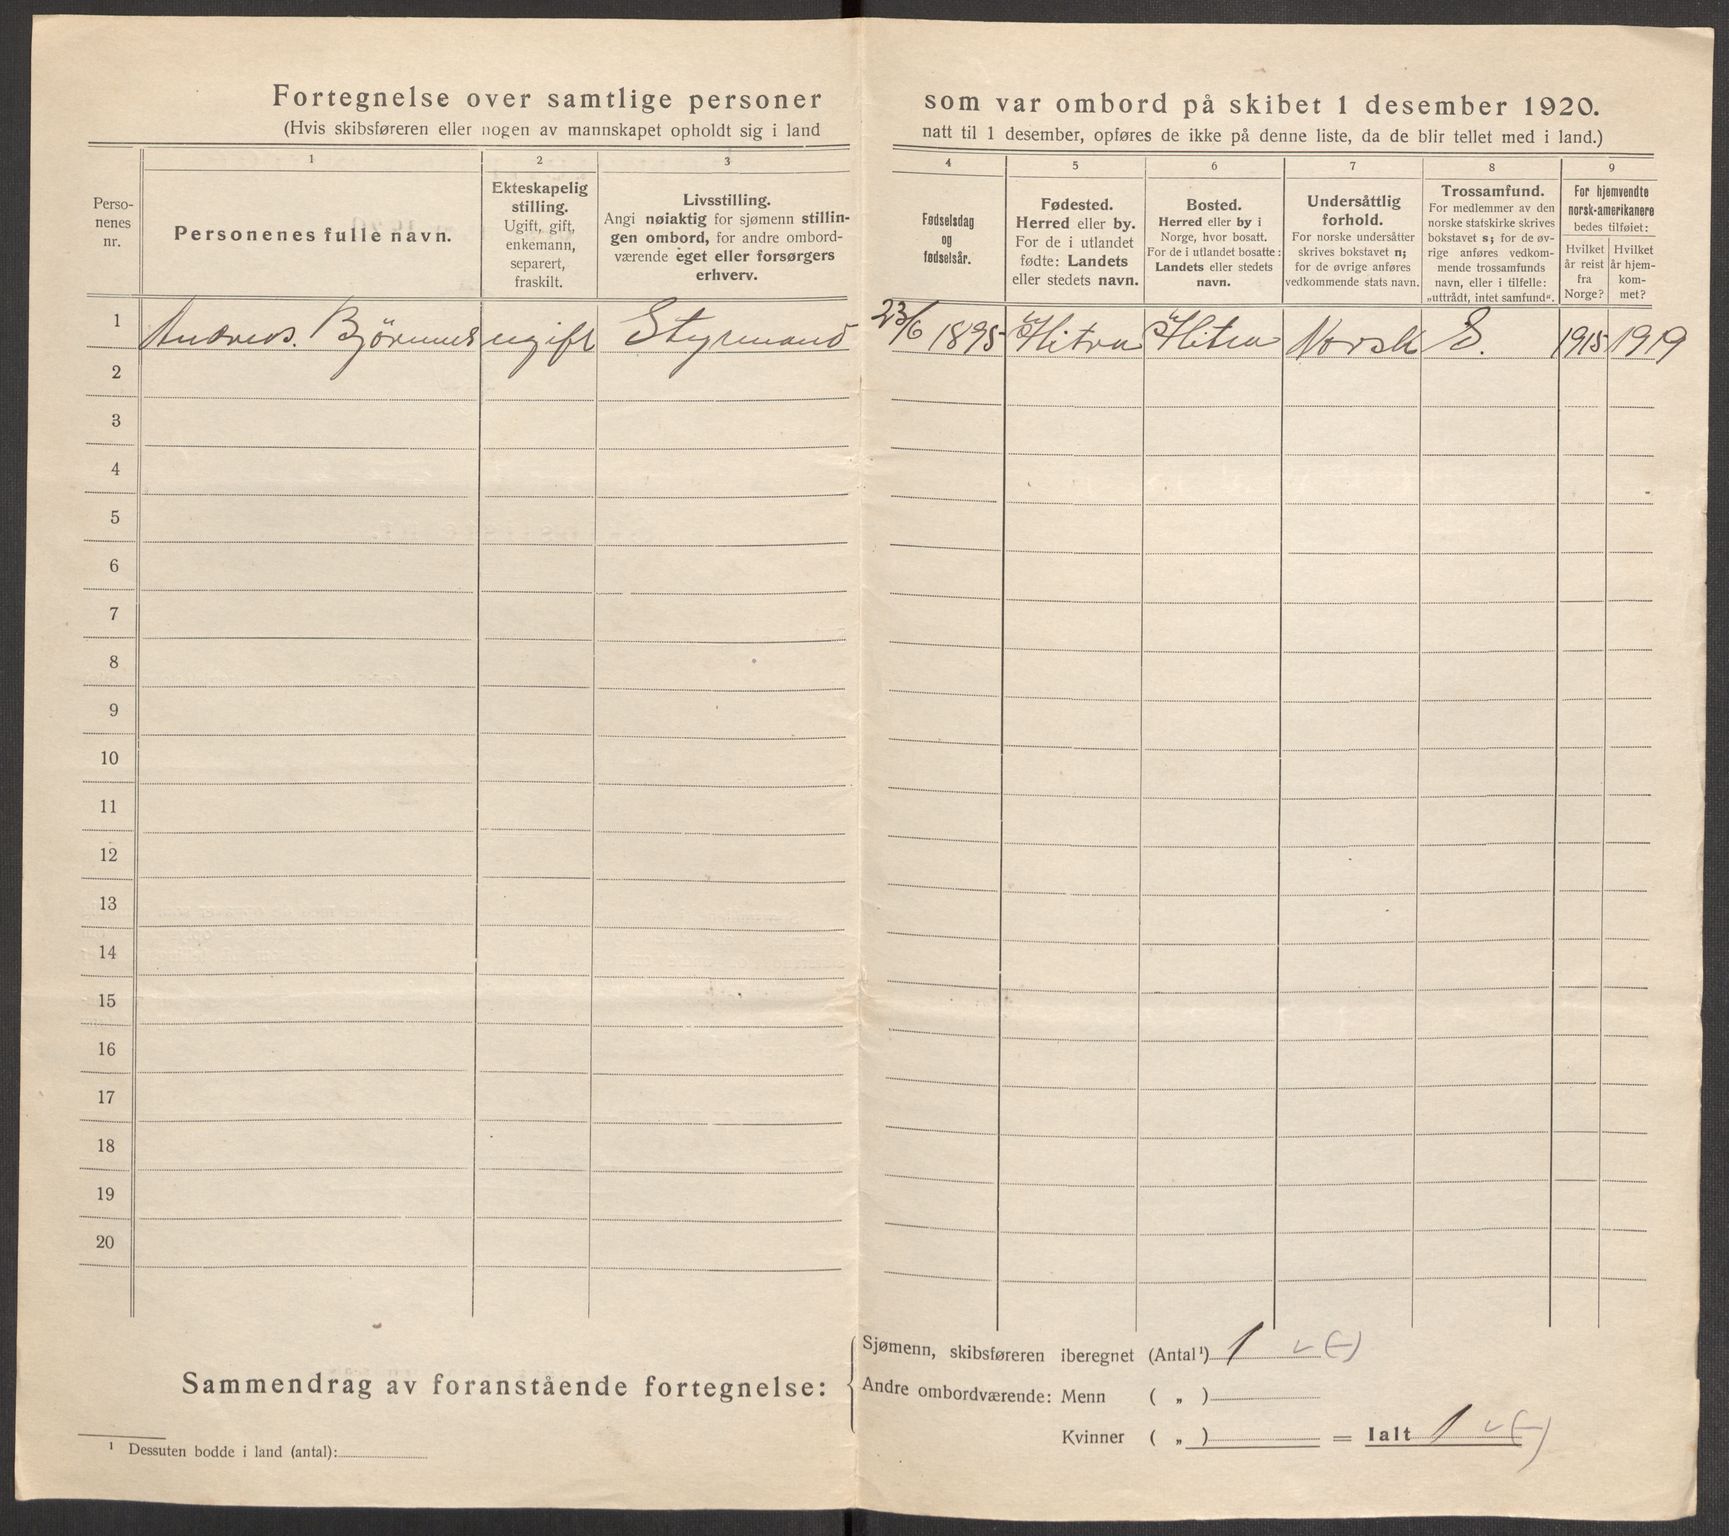 Fortegnelse over samtlige personer som var ombord på skibet 1 desember 1920.
(Hvis skibsføreren eller nogen av mannskapet opholdt sig i land natt til 1 desember, opføres de ikke på denne liste, da de blir tellet med i land.)
Perso-
nenes
nr.
1
Personenes fulle navn.
2
Ekteskapelig
stilling.
Ugift, gift,
enkemann,
separert,
fraskilt.
3
Livsstilling.
Angi nøiaktig for sjømenn stillin-
gen ombord, for andre ombord-
værende eget eller forsørgers
erhverv.
4
Fødselsdag
og
fødselsår.
5
Fødested.
Herred eller by.
For de i utlandet
fødte: Landets
eller stedets navn.
6
Bosted.
Herred eller by i
Norge, hvor bosatt.
For de i utlandet bosatte:
Landets eller stedets
navn.
7
Undersåttlig
forhold.
For norske undersåtter
skrives bokstavet n;
for de øvrige anføres
vedkommende stats navn.
8
Trossamfund.
For medlemmer av den
norske statskirke skrives
bokstavet s; for de øv-
rige anføres vedkom-
mende trossamfunds
navn, eller i tilfelle:
„uttrådt, intet samfund“.
9
For hjemvendte
norsk-amerikanere
bedes tilføiet:
Hvilket
år reist
fra
Norge?
Hvilket
år hjem-
kom-
met?
1 Andreas. ugift Styrmand 23/6 1895 Hitra Hitra Norsk S. 1915 1919
2
3
4
5
6
7
8
9
10
11
12
13
14
15
16
17
18
19
20
Sammendrag av foranstående fortegnelse:
Sjømenn, skibsføreren iberegnet (Antal¹) 1 (-)
Andre ombordværende: Menn ( „ )
Kvinner ( „ ) = Ialt 1 (-)
¹ Dessuten bodde i land (antal):